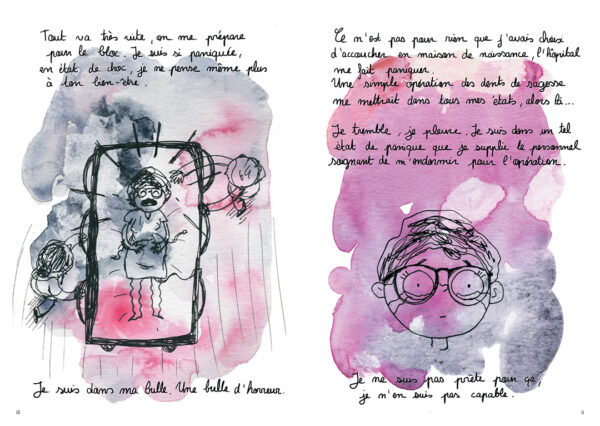 Tout va très vite, on me prépare
pour le bloc. Je suis si paniquée,
en état de choc, je ne pense même plus
à ton bien-être.
Je suis dans ma bulle. Une bulle d'horreur.
10
Ce n'est pas pour rien que j'avais choisi
d'accoucher en maison de naissance, l'hôpital
me fait paniquer.
Une simple opération des dents de sagesse
me mettrait dans tous mes états, alors là...
Je tremble, je pleure. Je suis dans un tel
état de panique que je supplie le personnel
soignant de m'endormir pour l'opération.
Je ne suis pas prête pour ça,
je n'en suis pas capable.
11